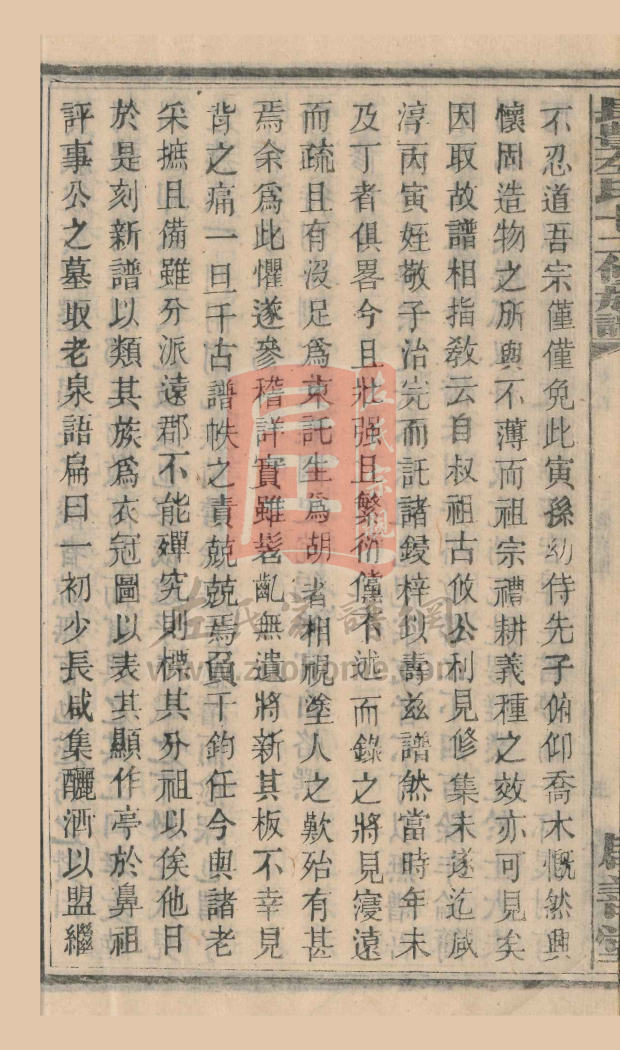 不忍道吾宗僅僅免此寅孫幼侍先子俯仰喬木慨然興
懷固造物之所與不薄而祖宗禮耕義種之效亦可見矣
因取故譜相指教云自叔祖古攸公利見修集未遂迄咸
淳丙寅姪敬子治完而託諸鋟梓以壽茲譜然當時年未
及丁者俱畧今且壯强且繁衍儻不述而錄之將見寖遠
而疏且有沒足為東託生為胡者相視塗人之歎殆有甚
焉余為此懼遂參稽詳實雖髦齓無遺將新其板不幸見
背之痛一旦千古譜帙之責兢兢焉負千鈞任今與諸老
采摭且備雖分派遠郡不能殫究則標其分祖以俟他日
於是刻新譜以類其族為衣冠圖以表其顯作亭於鼻祖
評事公之墓取老泉語扁曰一初少長咸集釃酒以盟繼
左氏家譜網
www.zuohome.com